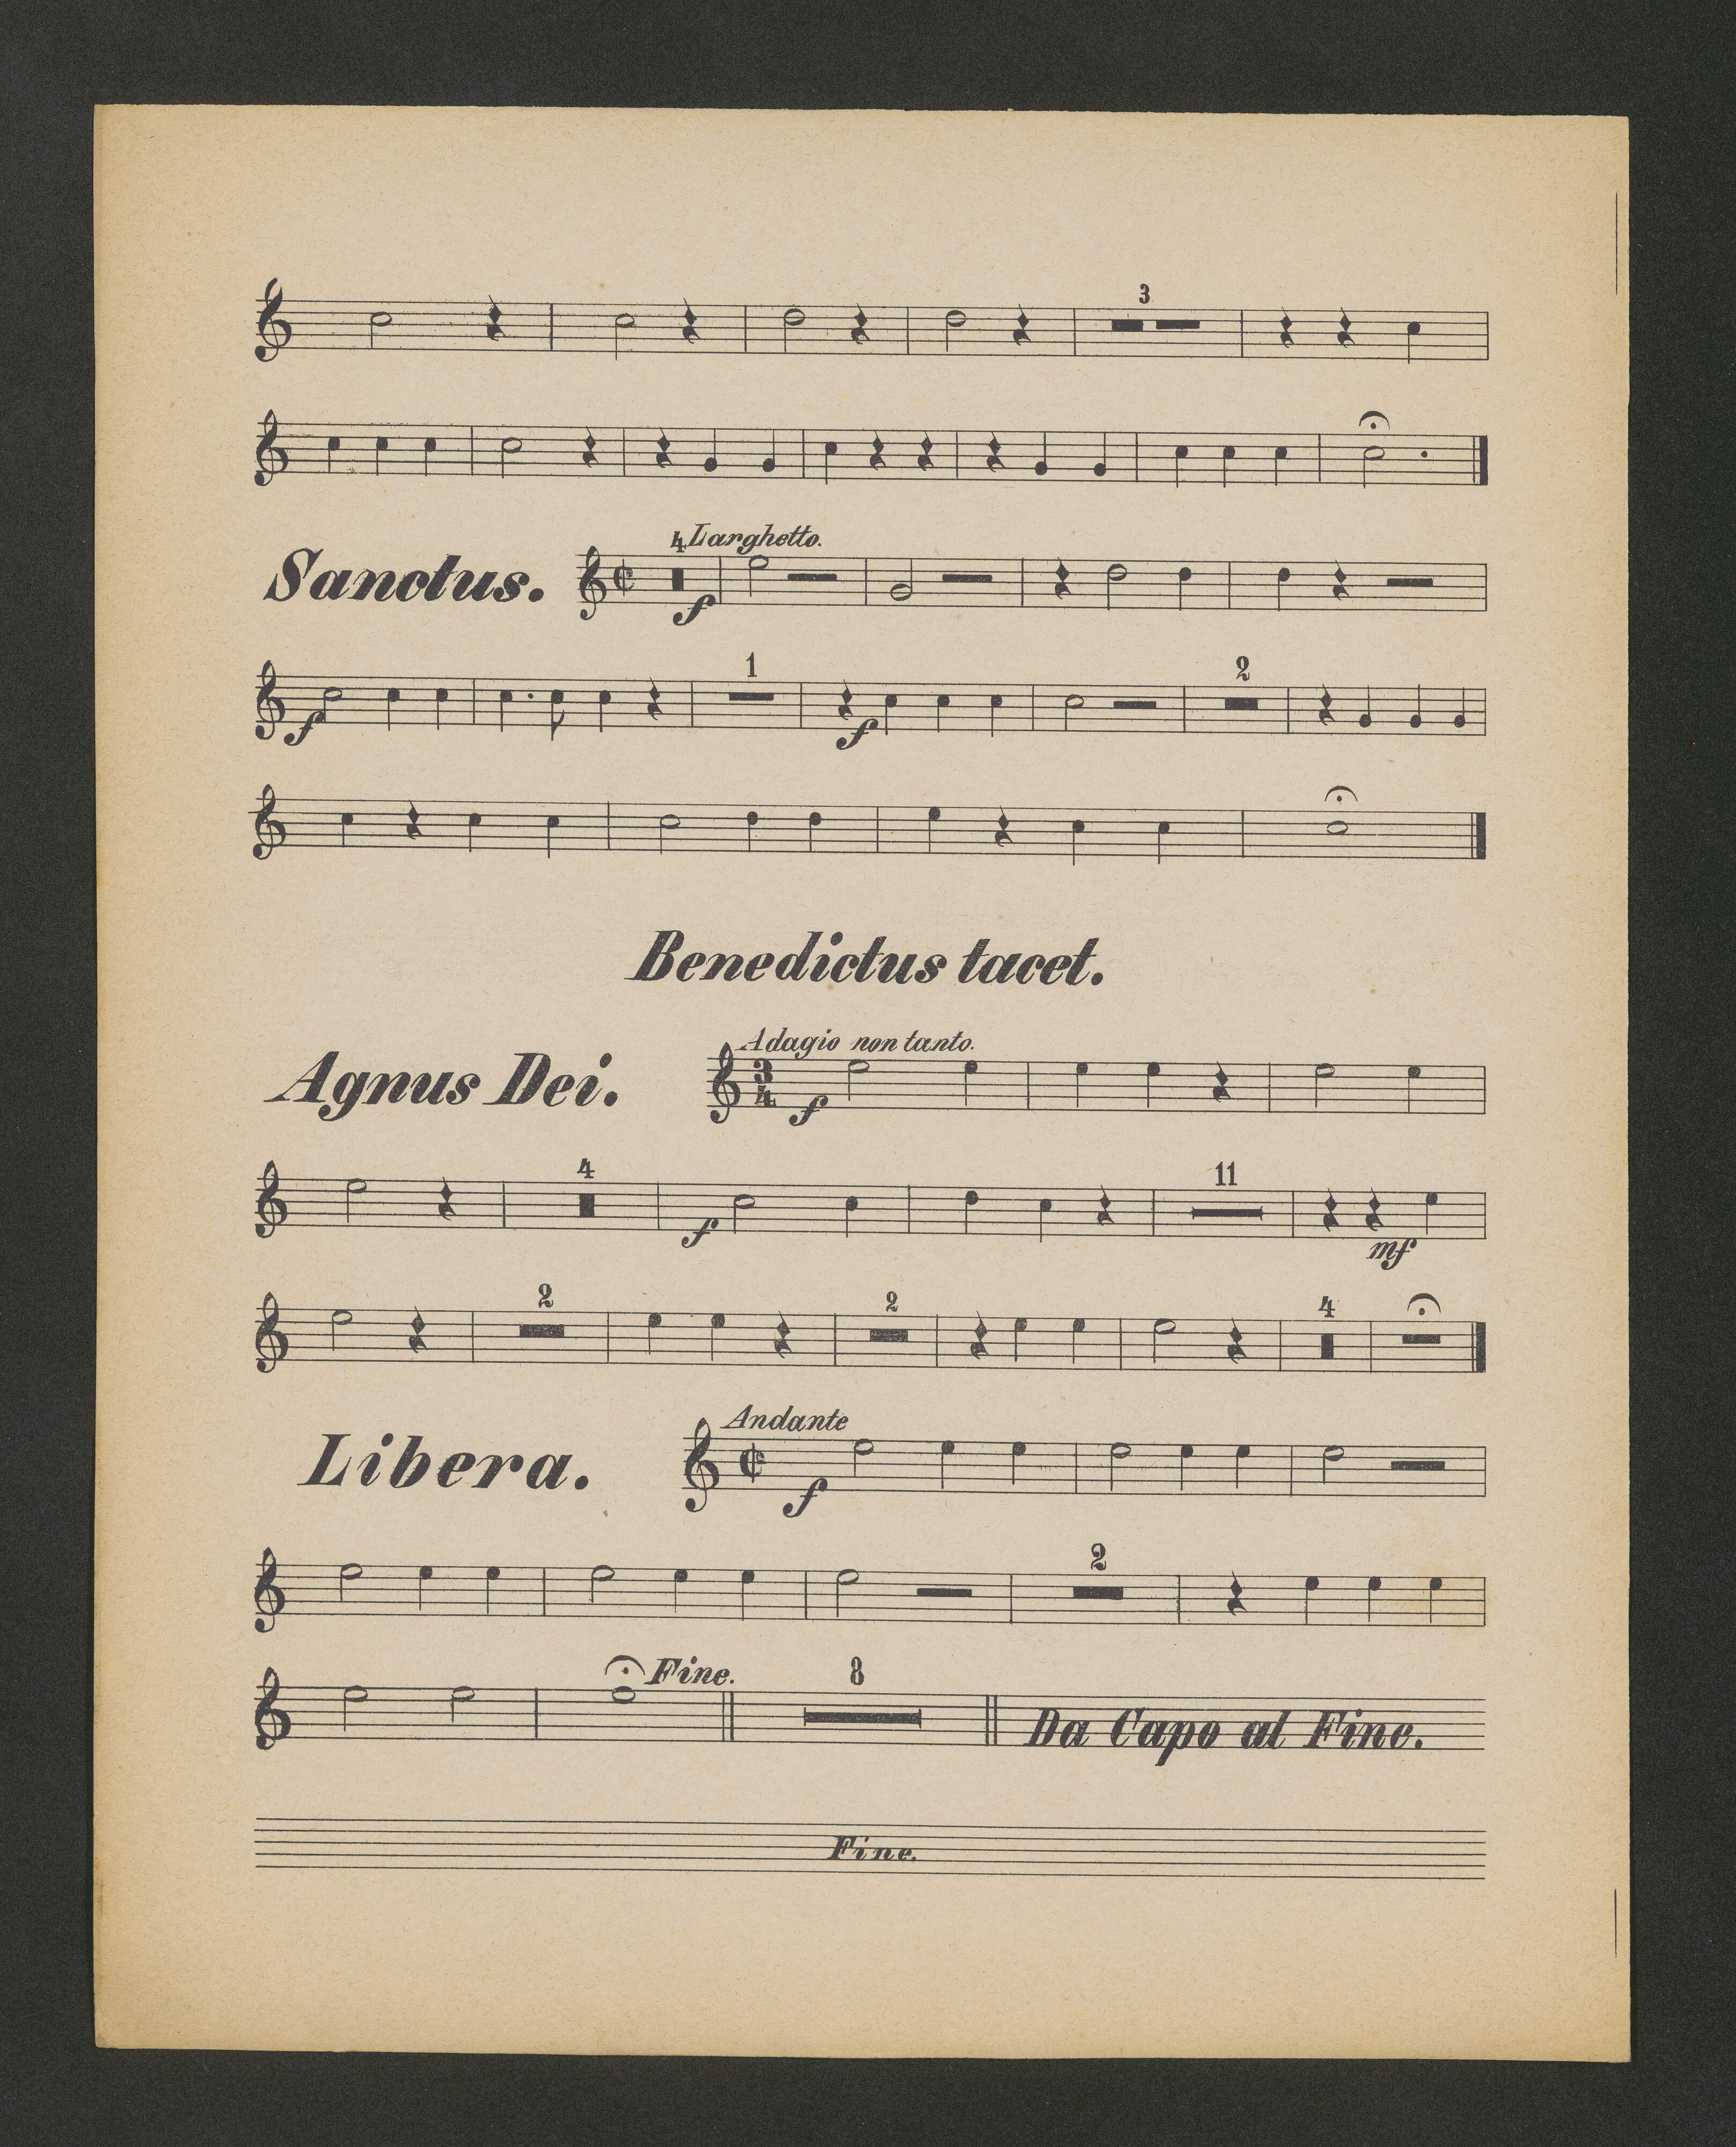 3
Sanctus.
4 Larghetto.
f
1
2
f
f
Benedictus tacet.
Agnus Dei.
Adagio non tanto.
3
4
f
4
11
f
mf
2
2
4
Libera.
Andante
f
2
Fine.
8
Da Capo al Fine.
Fine.